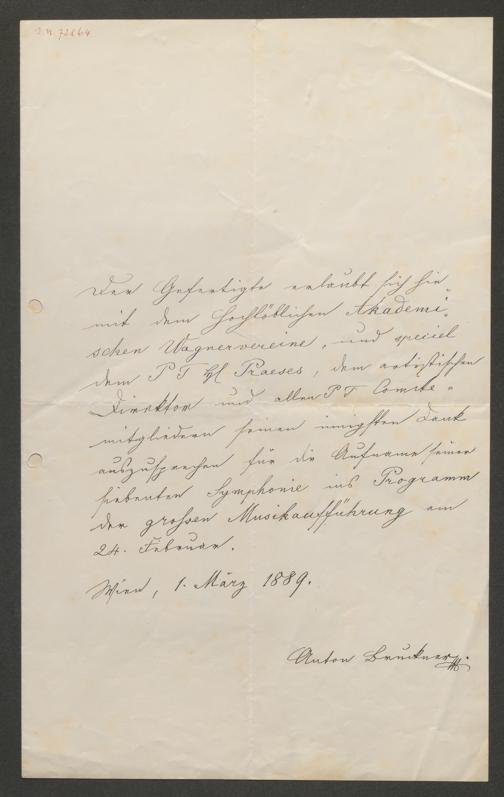 I.N. 72864
Der Gefertigte erlaubt sich hie-
mit dem hochlöblichen Akademi-
schen Wagnervereine, und speciel
dem P T H Praeses, dem artistischen
Direktor und allen P T Comite-
mitgliedern seinen innigsten Dank
auszusprechen für die Aufname seiner
siebenten Symphonie ins Programm
der grossen Musikaufführung am
24. Februar.
Wien, 1. März 1889.
Anton Bruckner